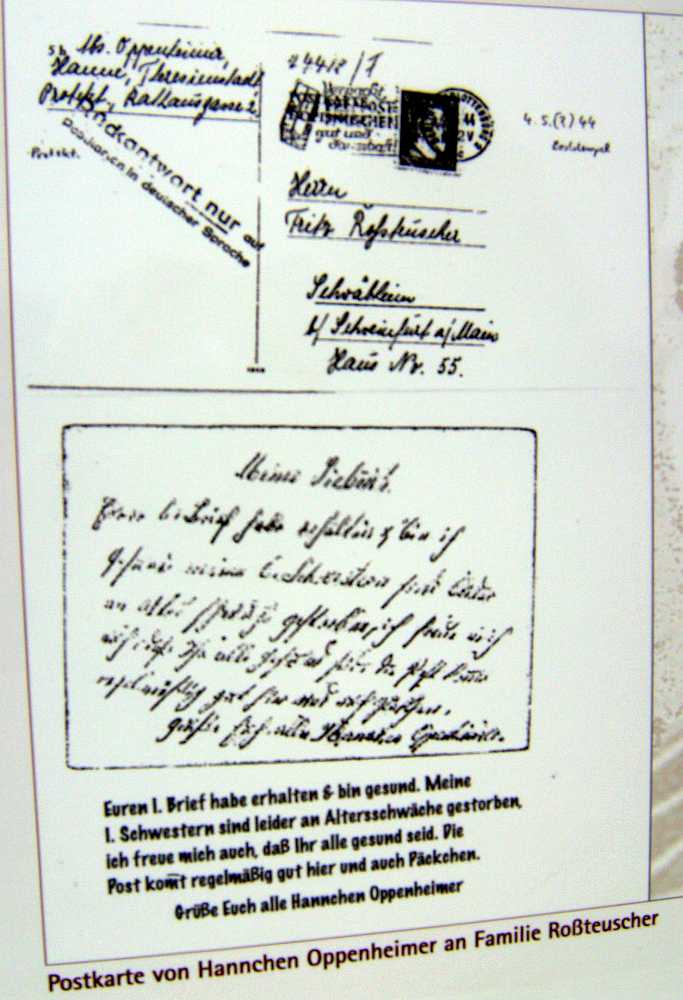 Abs. Oppenheimer,
Hanne, Theresienstadt
Protekt., Rathausgasse 2
Rückantwort nur auf
Postkarten in deutscher Sprache
gut und
Herrn
Fritz Roßteuscher
Schwebheim
b/ Schweinfurt a/Main
Haus Nr. 55.
4. 5. (?) 44
Poststempel
Meine Lieben!
Euren l. Brief habe erhalten & bin ich
gesund meine l. Schwestern sind leider
an Altersschwäche gestorben, ich freue mich
auch, daß Ihr alle gesund seid. Die Post kommt
regelmäßig gut hier und auch Päckchen.
Grüße Euch alle Hannchen Oppenheimer.
Euren l. Brief habe erhalten & bin gesund. Meine
l. Schwestern sind leider an Altersschwäche gestorben,
ich freue mich auch, daß Ihr alle gesund seid. Die
Post kom̅t regelmäßig gut hier und auch Päckchen.
Grüße Euch alle Hannchen Oppenheimer
Postkarte von Hannchen Oppenheimer an Familie Roßteuscher